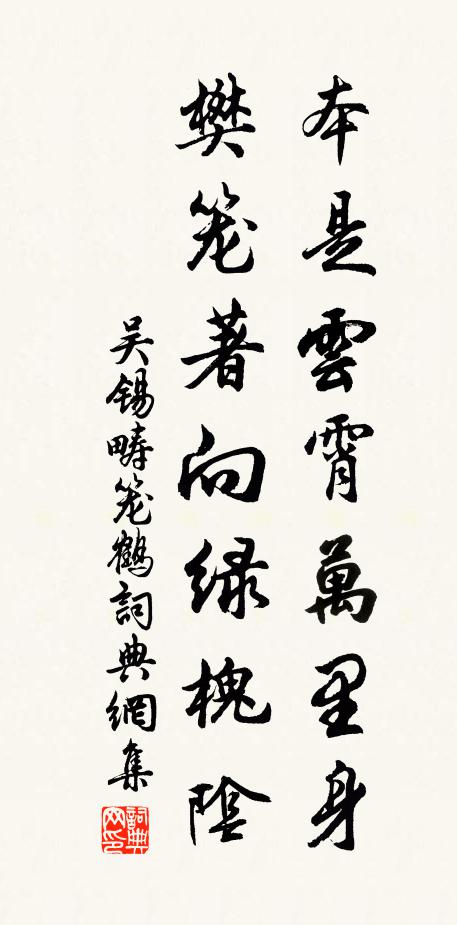 本是雲霄萬里身
樊笼著向绿槐陰
吴锡疇笼鶴詞典網集
詞典网印